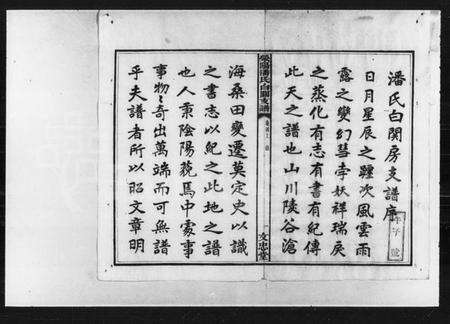 潘氏白関房支譜序
日月星辰之躔次風雲雨
露之變幻彗孛妖祥瑞戾
之蒸化有志有書有紀傳
此天之譜也山川陵谷滄
滎陽潘氏白關支譜
文忠堂
海桑田變遷莫定史以識
之書志以紀之此地之譜
也人秉陰陽藐焉中處事
事物〻奇出萬端而可無譜
乎夫譜者所以昭文章明